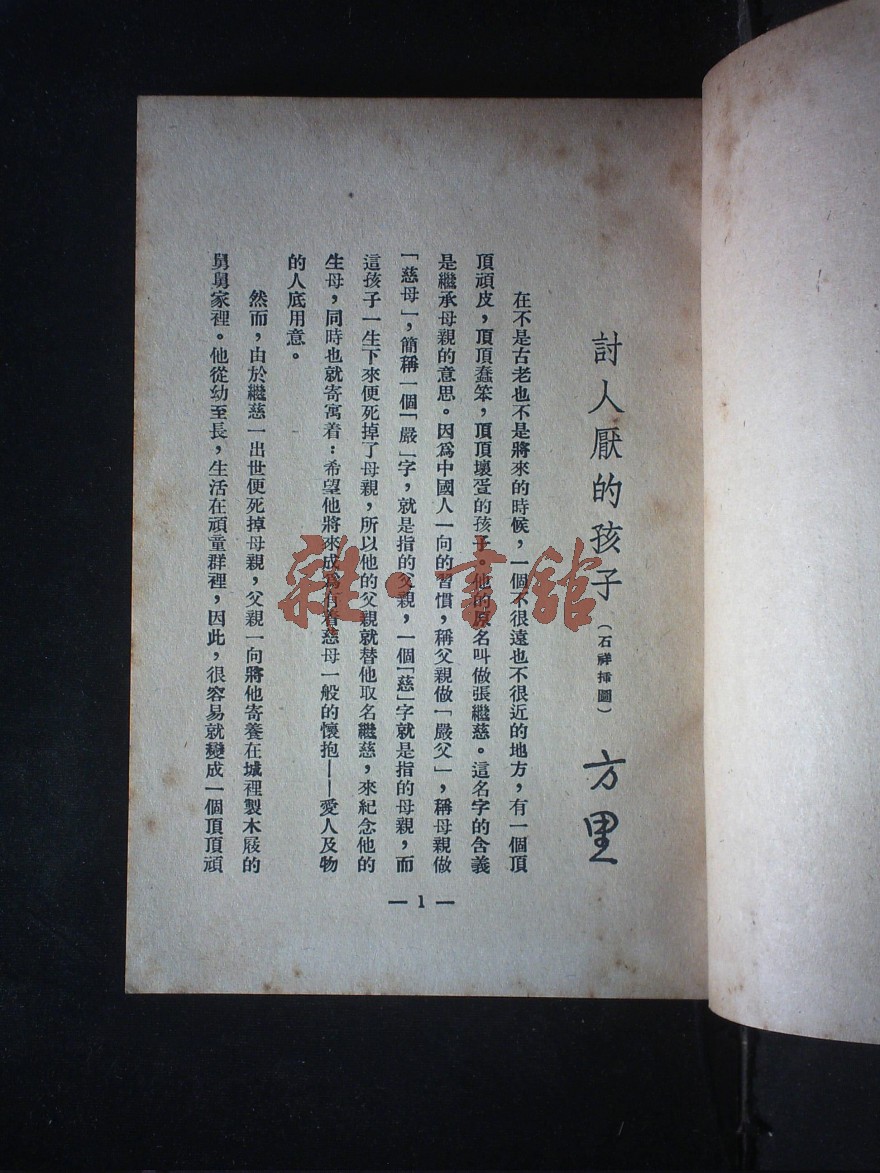 討人厭的孩子（石祥揷圖） 方里
在不是古老也不是將來的時候，一個不很遠也不很近的地方，有一個頂
頂頑皮，頂頂蠢笨，頂頂壞蛋的孩子。他的原名叫做張繼慈。這名字的含義
是繼承母親的意思。因爲中國人一向的習慣，稱父親做「嚴父」，稱母親做
「慈母」，簡稱一個「嚴」字，就是指的父親，一個「慈」字就是指的母親，而
這孩子一生下來便死掉了母親，所以他的父親就替他取名繼慈，來紀念他的
生母，同時也就寄寓着：希望他將來成爲有着慈母一般的懷抱——愛人及物
的人底用意。
然而，由於繼慈一出世便死掉母親，父親一向將他寄養在城裡製木屐的
舅舅家裡。他從幼至長，生活在頑童群裡，因此，很容易就變成一個頂頂頑
— 1 —
雜·書館